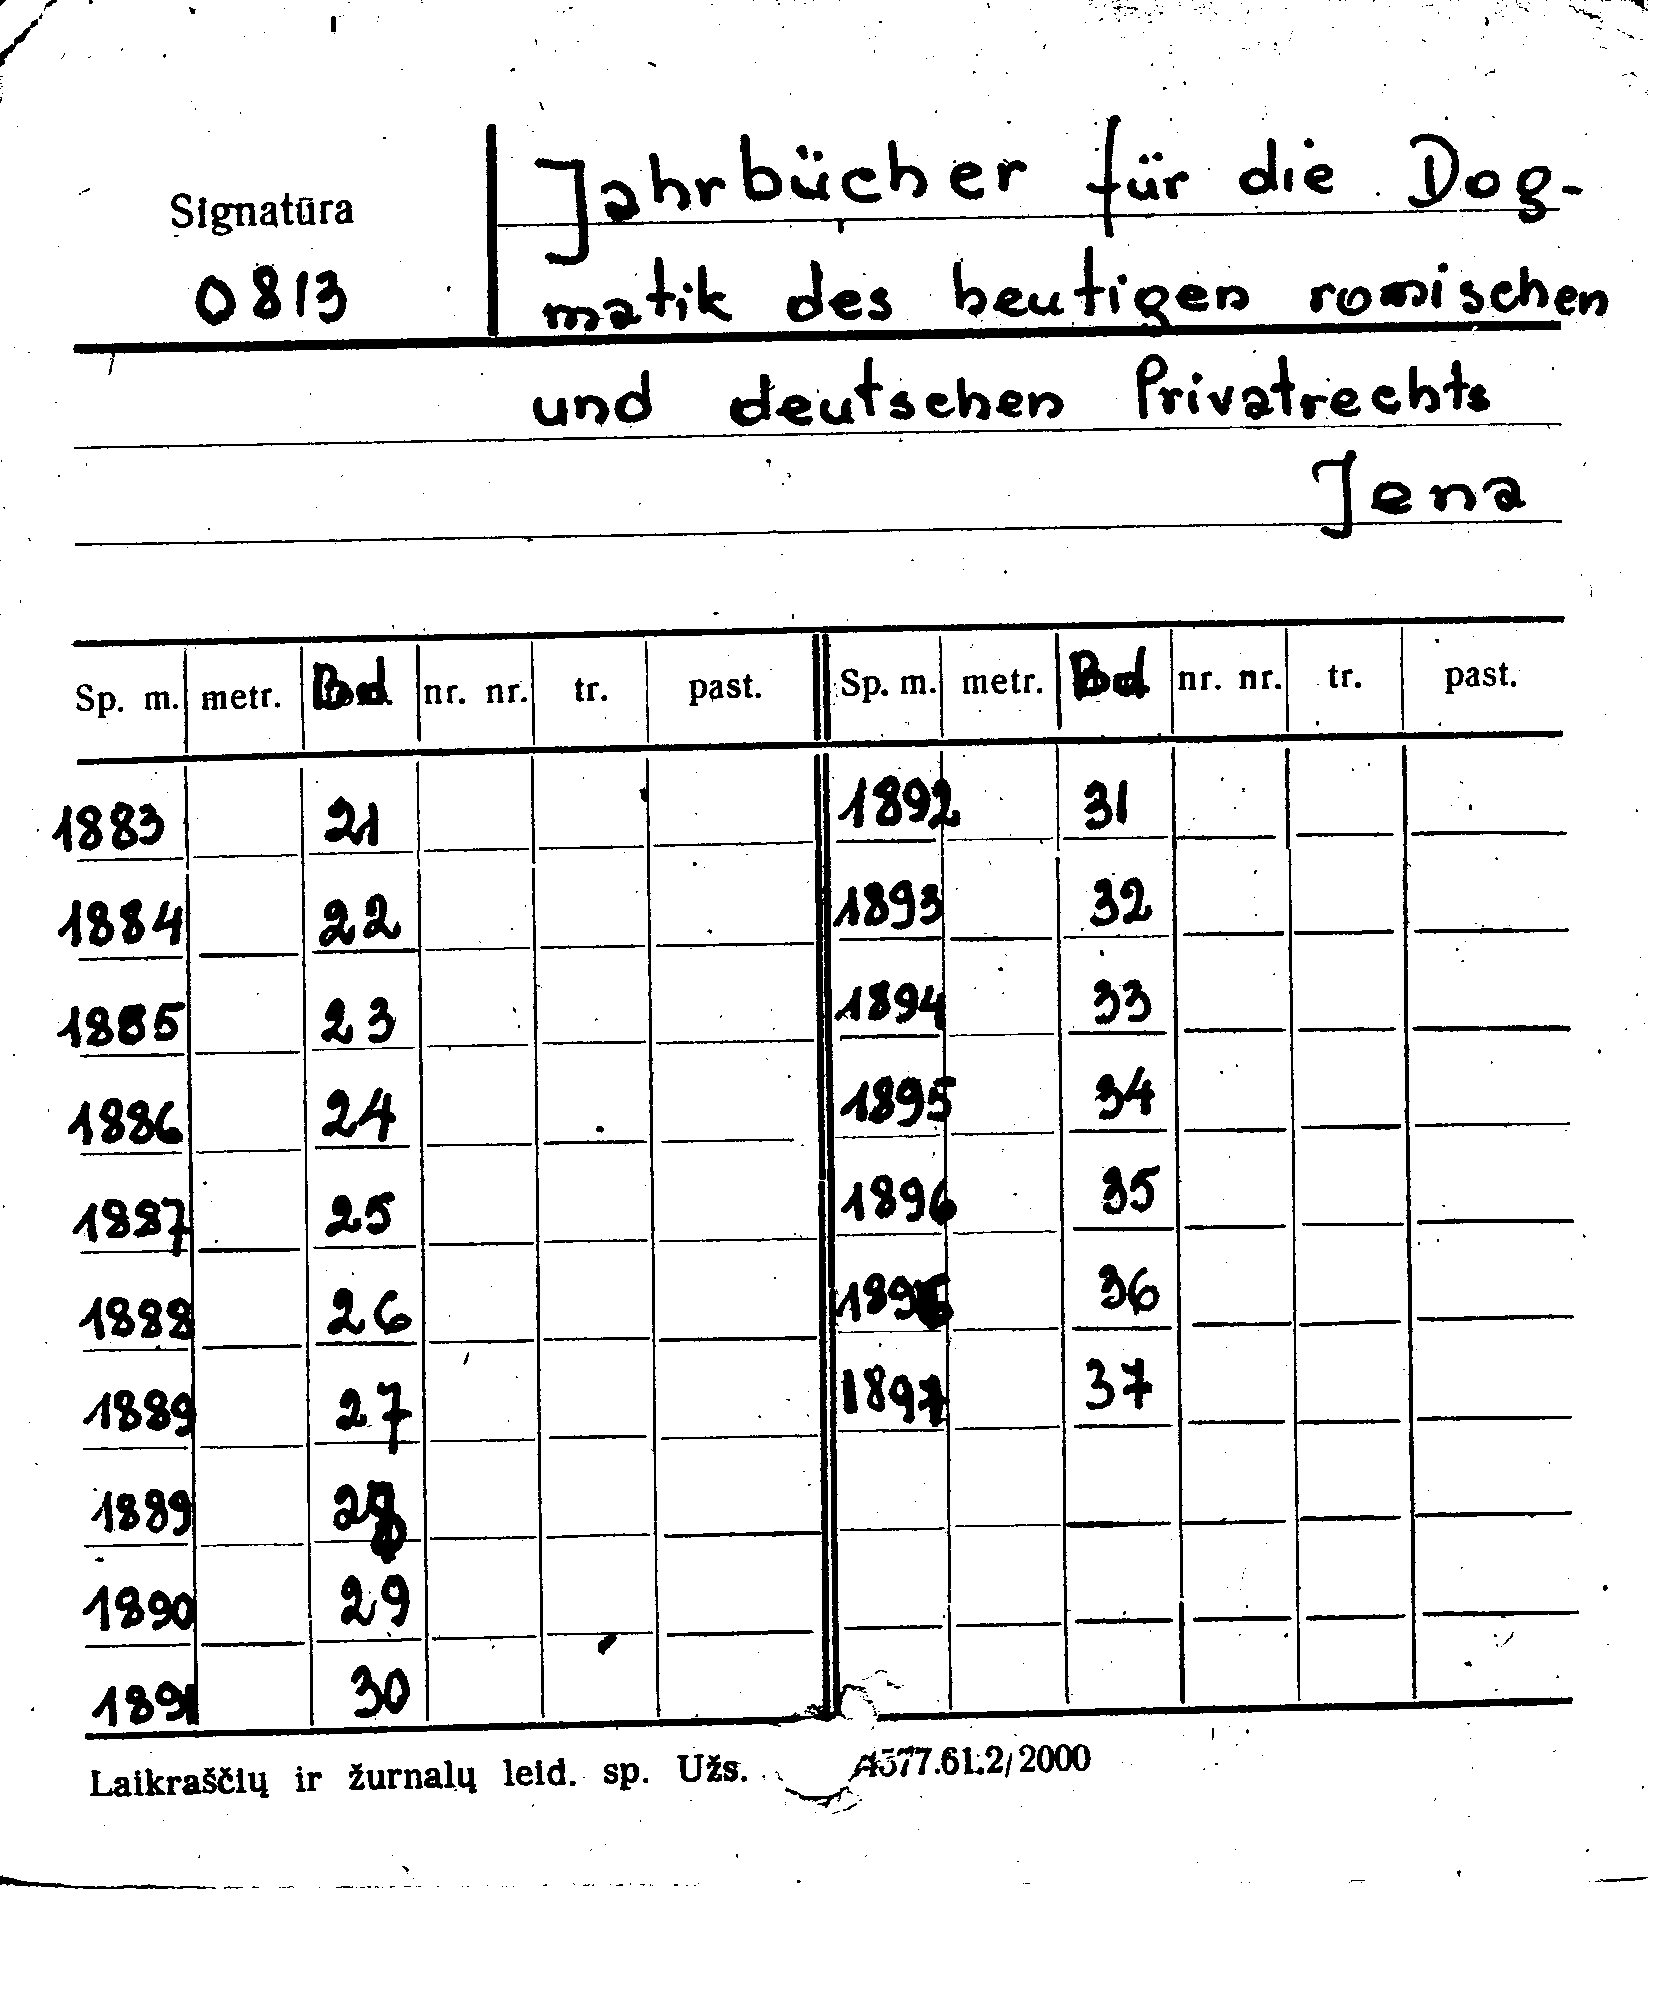 Signatūra
0813
Jahrbücher für die Dog-
matik des heutigen romischen
und deutschen Privatrechts
Jena
Sp. m. metr. Bd nr. nr. tr. past. Sp. m. metr. Bd nr. nr. tr. past.
1883 21 1892 31
1884 22 1893 32
1885 23 1894 33
1886 24 1895 34
1887 25 1896 35
1888 26 1896 36
1889 27 1897 37
1889 28
1890 29
1891 30
Laikraščių ir žurnalų leid. sp. Užs. 4577.61.2/2000